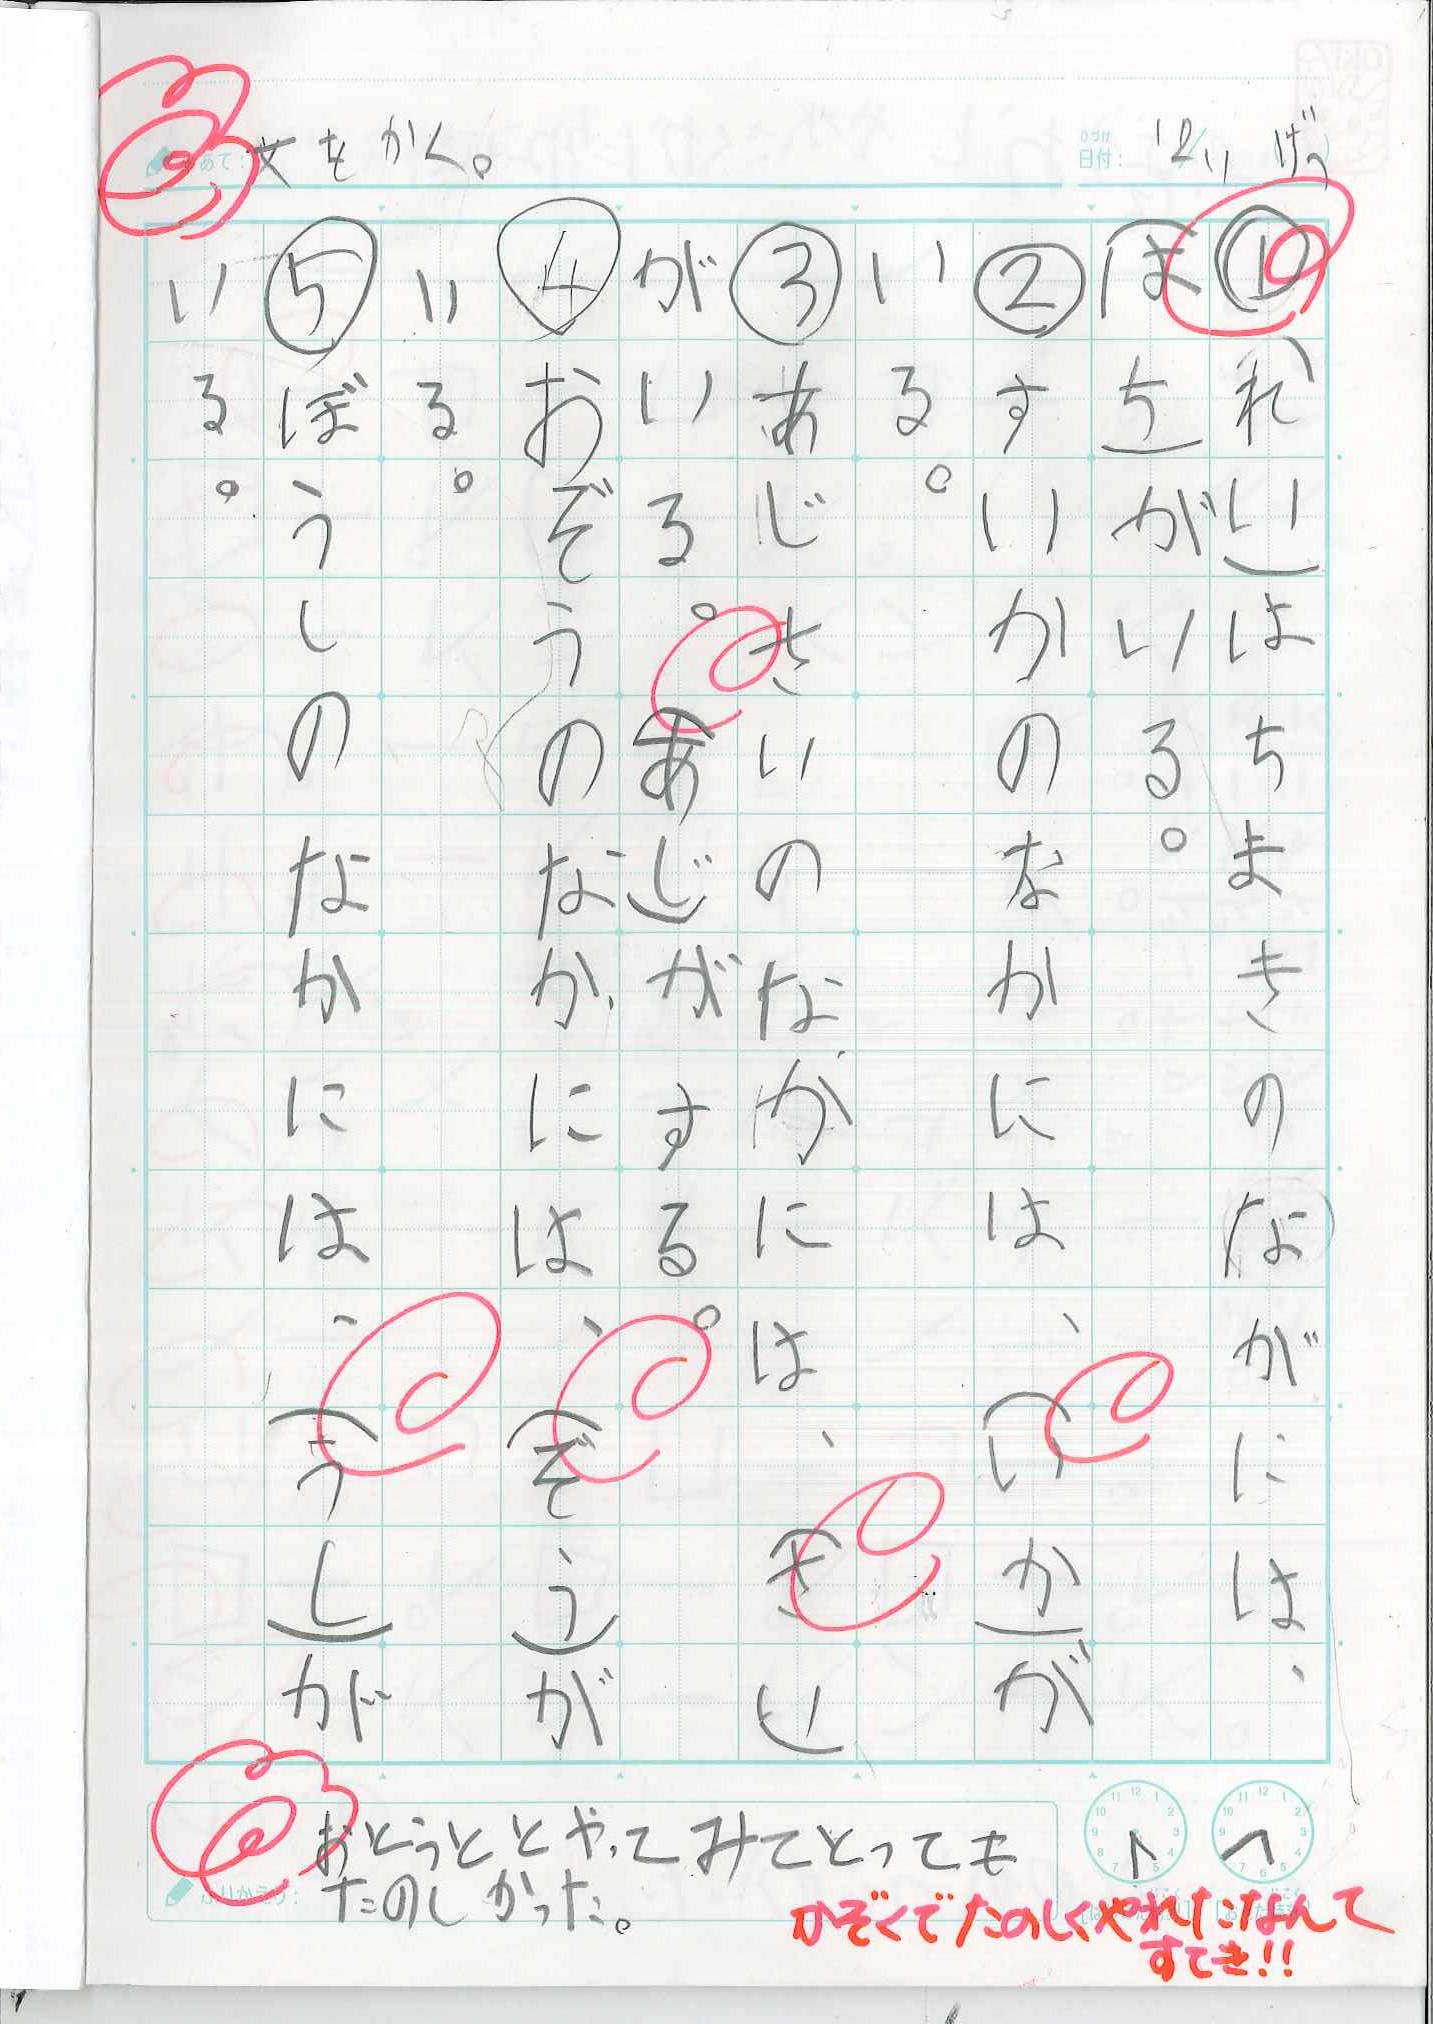 めあて：文をかく。
ひづけ
日付：12/11 げつ
①れいはちまきのながには、
(はち)がいる。
②すいかのなかには、(いか)が
いる。
③あじさいのなかには、(さい)
がいる。(あじ)がする。
④おぞうのなかには、(ぞう)が
いる。
⑤ぼうしのなかには、(うし)が
いる。
ふりかえり：おとうととやってみてとっても
たのしかった。
かぞくでたのしくやれたなんて
すてき!!